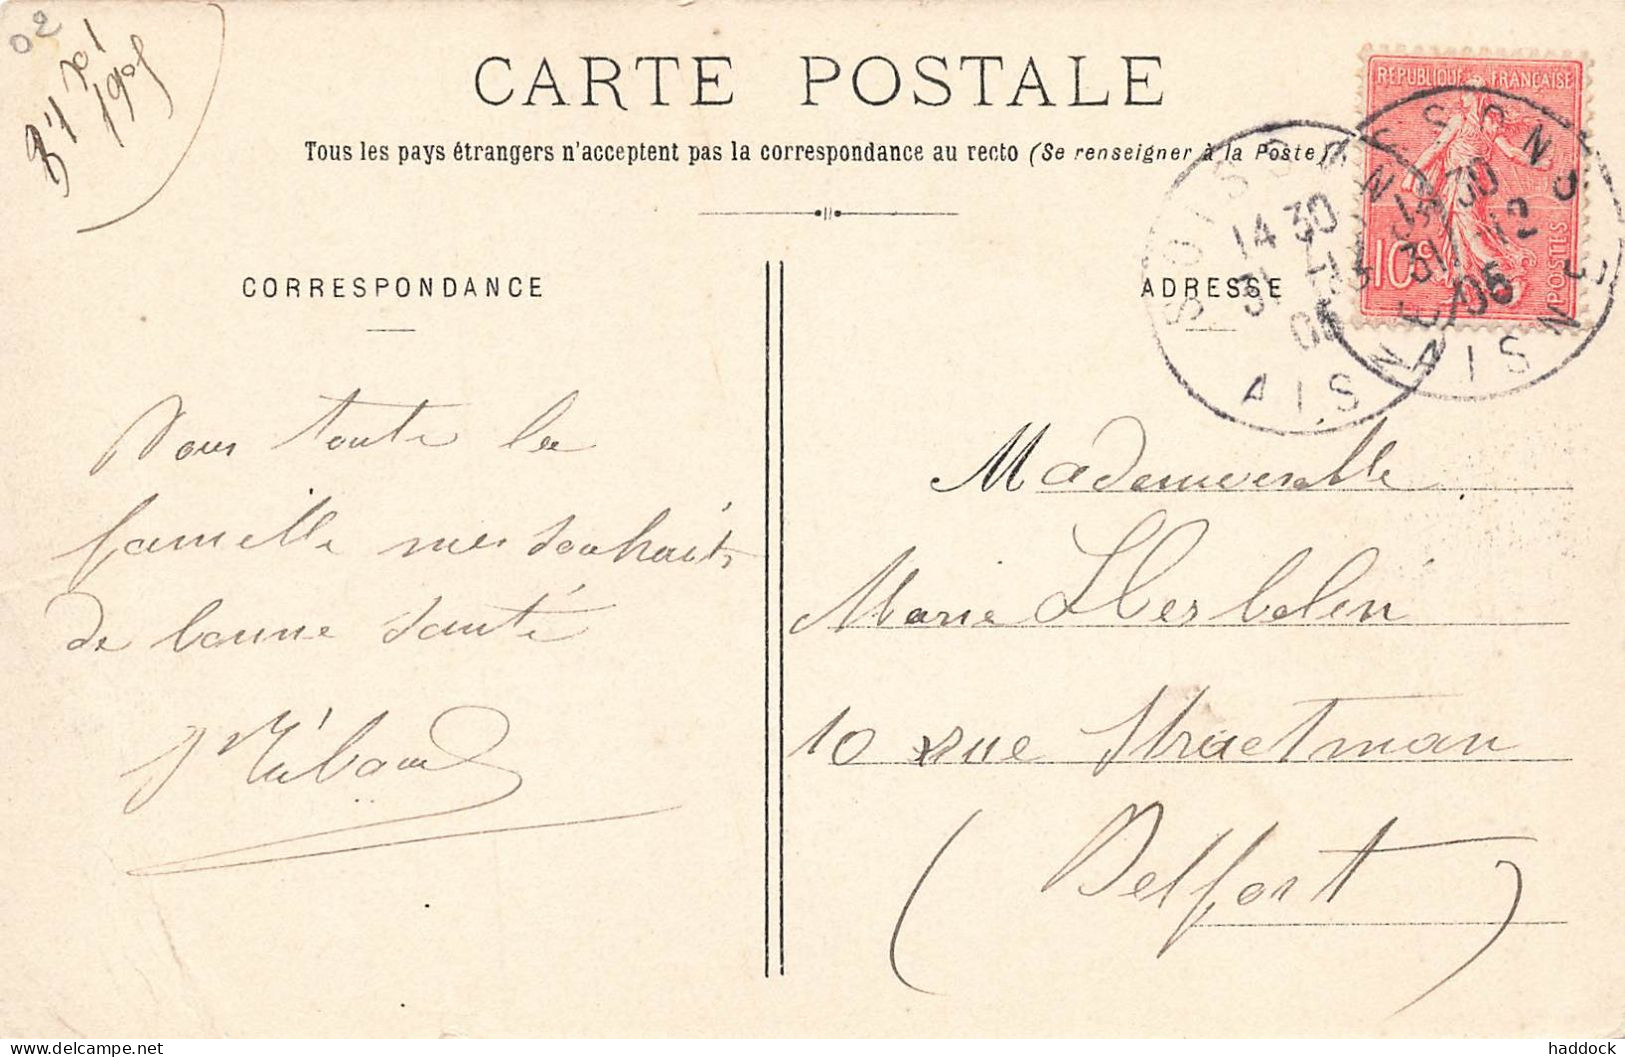 02
CARTE POSTALE
Tous les pays étrangers n'acceptent pas la correspondance au recto (Se renseigner à la Poste)
REPUBLIQUE FRANÇAISE
10c
POSTES
SOISSONS
14 30
31 -12
05
AISNE
SOISSONS
14 30
31 -12
05
AISNE
CORRESPONDANCE
ADRESSE
Pour toute la
famille mes souhaits
de bonne santé
Mademoiselle
Marie Herbelin
10 rue Stractman
(Belfort)
haddock